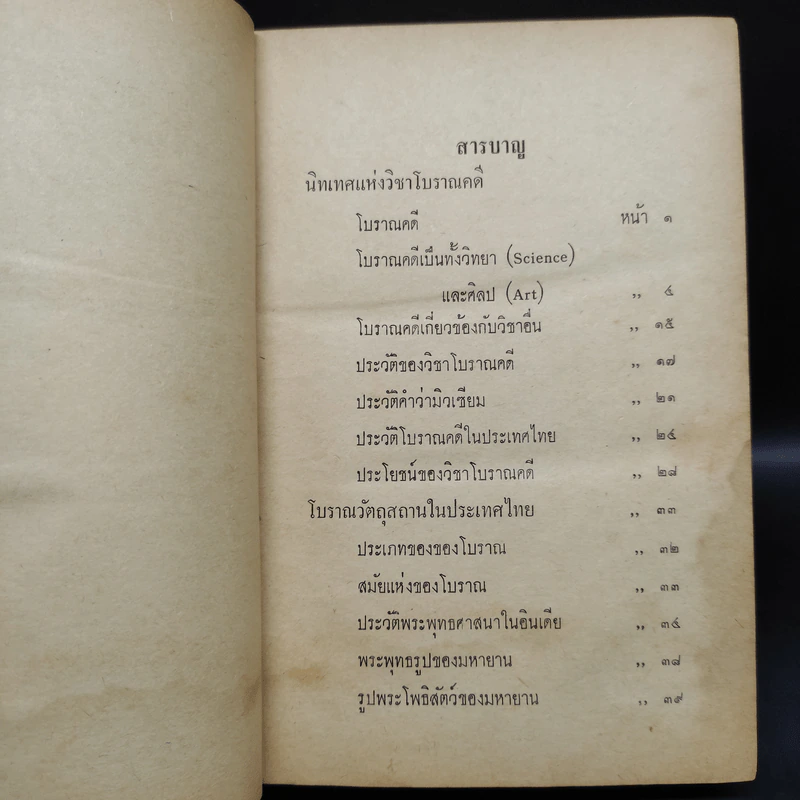 สารบาญ
นิทเทศแห่งวิชาโบราณคดี
โบราณคดี หน้า ๑
โบราณคดีเป็นทั้งวิทยา (Science)
และศิลป (Art) ,, ๔
โบราณคดีเกี่ยวข้องกับวิชาอื่น ,, ๑๕
ประวัติของวิชาโบราณคดี ,, ๑๗
ประวัติคำว่ามิวเซียม ,, ๒๑
ประวัติโบราณคดีในประเทศไทย ,, ๒๔
ประโยชน์ของวิชาโบราณคดี ,, ๒๘
โบราณวัตถุสถานในประเทศไทย ,, ๓๓
ประเภทของของโบราณ ,, ๓๒
สมัยแห่งของโบราณ ,, ๓๓
ประวัติพระพุทธศาสนาในอินเดีย ,, ๓๔
พระพุทธรูปของมหายาน ,, ๓๘
รูปพระโพธิสัตว์ของมหายาน ,, ๓๙